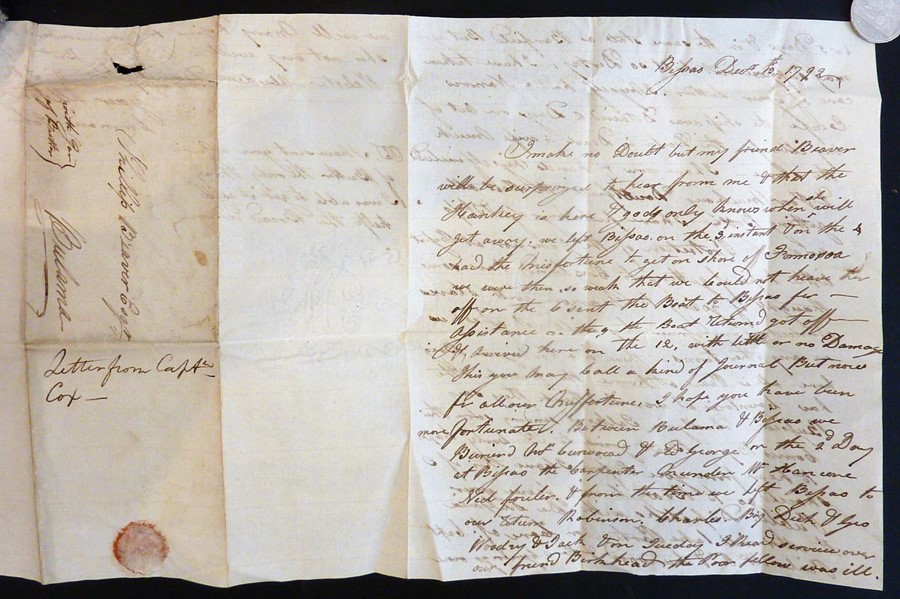 with Gov
of Butter
Phillip Beaver Esqr
Bulama
Letter from Captn
Cox —
Bissao Decr 1792
I make no Doubt but my friend Beaver
will be surprized to hear from me & that the
Hankey is here & god only knows when she will
get away. we left Bissao. on the 3 instant & on the 4
had the Misfortune to get on shore of Formosa
we were then so weak that we Could not heave her
off on the 6 sent the Boat to Bissao for —
assistance on the 9 the Boat Returnd got off —
& arrived here on the 12, with little or no Damage
this you may Call a kind of Journal But now
for all our Missfortunes. I hope you have been
more fortunate. Between Bulama & Bissao we
Buried Mr Curwood & D. George on the 2d Day
at Bissao the Carpenter
Ned fowler. & from the time we left Bissao to
our Return Robinson. Charles Big Dick & Geo
Woodry & Jack & on Tuesday I Read service over
our friend Birkhead the Poor fellow was ill.